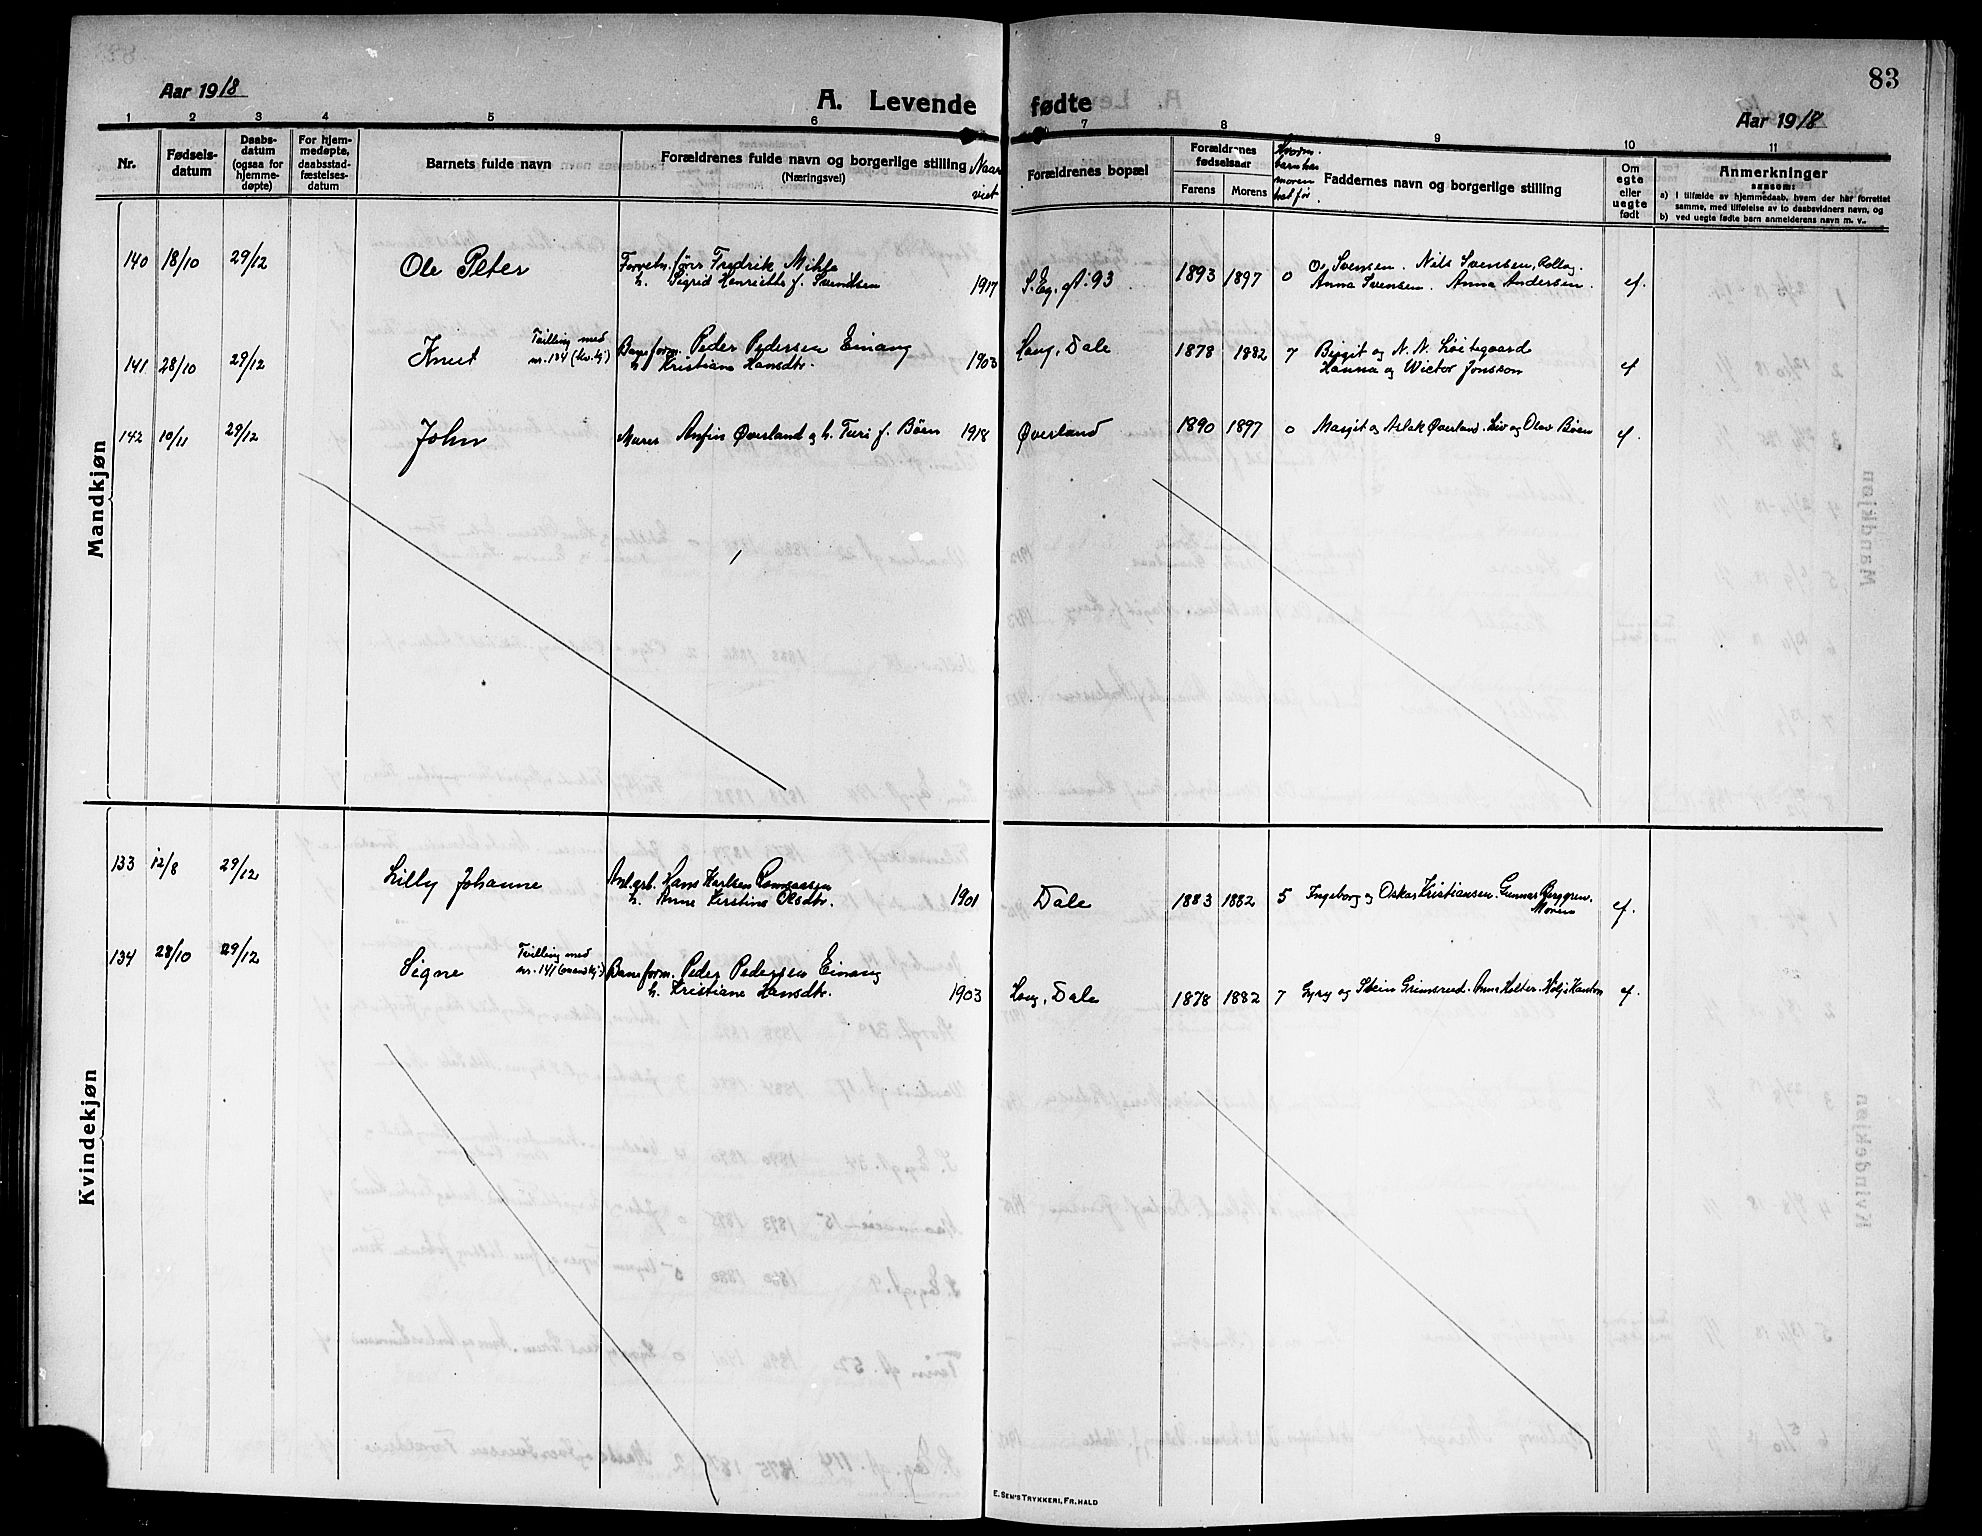 83
Aar 1918
A. Levende fødte
Aar 1918
1 2 3 4 5 6 7 8 9 10 11
Nr.
Fødsels-
datum
Daabs-
datum
(ogsaa for
hjemme-
døpte)
For hjem-
medøpte,
daabsstad-
fæstelses-
datum
Barnets fulde navn
Forældrenes fulde navn og borgerlige stilling
(Næringsvei)
Naar
viet
Forældrenes bopæl
Forældrenes
fødselsaar
Farens Morens
Hvorm.
barn har
moren
hat før
Faddernes navn og borgerlige stilling
Om
egte
eller
uegte
født
Anmerkninger
saasom:
a) I tilfælde av hjemmedaab, hvem der har forrettet
samme, med tilføielse av to daabsvidners navn, og
b) ved uegte fødte barn anmelderens navn m. v.
Mandkjøn
140 18/10 29/12 Ole Peter Forretn.före Fredrik
h. Sigrid Henriette f. Svendsen 1917 S. Eg. gt. 93 1893 1897 0 O. Svensen. Nils Svensen, Rollag.
Anna Svensen. Anna Andersen. ef.
141 28/10 29/12 Knut Tvilling med
nr. 134 (kv.kj) Baneform. Peder Pedersen Einang
h. Kristiane Hansdtr. 1903 Haug, Dale 1878 1882 7 Birgit og N. N. Løitegaard
Hanna og Wictor Jonsson ef
142 10/11 29/12 John Murer Anfin Øverland og h. Turi f. Böen 1918 Øverland 1890 1897 0 Margit og Aslak Øverland. Liv og Olav Böen ef.
Kvindekjøn
133 12/8 29/12 Lilly Johanne Anl.arb. Hans Karlsen Romsaasen
h. Anne Kirstine Olsdtr. 1901 Dale 1883 1882 5 Ingeborg og Oskar Kristiansen. Gunnar Berggren.
Moren ef.
134 28/10 29/12 Signe Tvilling med
nr. 141 (mandkj) Baneform. Peder Pedersen Einang
h. Kristiane Hansdtr. 1903 Haug, Dale 1878 1882 7 Gyry og Stein Grimsrud. Anna Holter. Hölje Kanton ef.
E. SEM'S TRYKKERI, FR.HALD